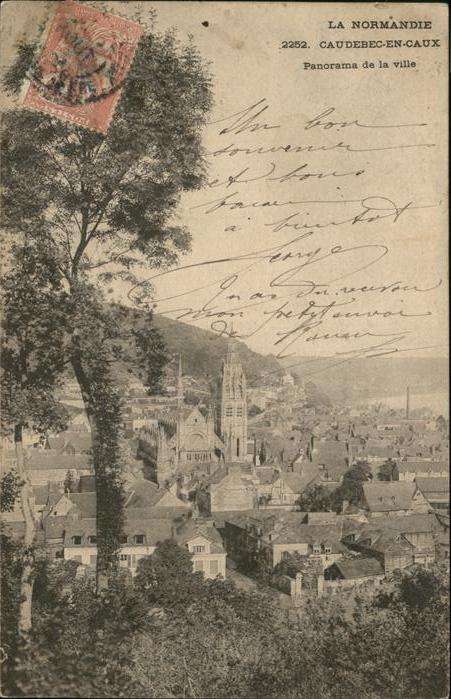 LA NORMANDIE
2252. CAUDEBEC-EN-CAUX
Panorama de la ville
Un bon
souvenir
et bons
à bientôt
Tu as du recevoir
mon petit envoi
de